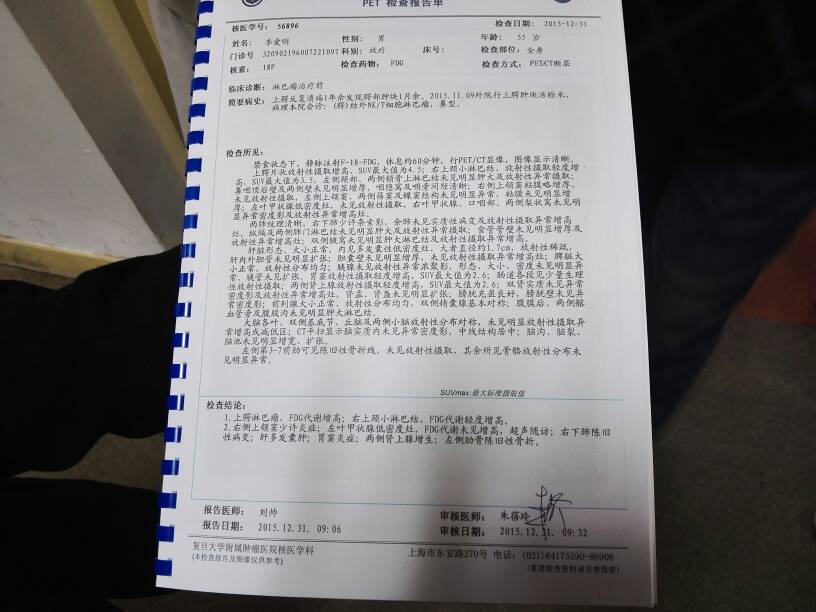 PET 检查报告单
核医学号: 56896 检查日期: 2015-12-31
姓名: 李爱明 性别: 男 年龄: 55 岁
门诊号 320902196007221097 科别: 放疗 床号: 检查部位: 全身
核素: 18F 检查药物: FDG 检查方式: PET-CT断层
临床诊断: 淋巴瘤治疗前
简要病史: 上腭反复溃疡1年余发现腭部肿块1月余, 2015.11.09外院行上腭肿块活检术,
病理本院会诊: (腭)结外NK/T细胞淋巴瘤, 鼻型。
检查所见:
禁食状态下, 静脉注射F-18-FDG, 休息约60分钟, 行PET/CT显像, 图像显示清晰。
上腭片状放射性摄取增高, SUV最大值为4.5; 右上颈小淋巴结, 放射性摄取轻度增
高, SUV最大值为3.5, 左侧颈部、两侧锁骨上淋巴结未见明显肿大及放射性异常摄取;
鼻咽顶后壁及两侧壁未见明显增厚, 咽隐窝及咽旁间隙清晰; 右侧上颌窦粘膜略增厚,
未见放射性摄取, 左侧上颌窦、两侧筛窦及蝶窦结构未见明显异常, 粘膜未见明显增
厚; 左叶甲状腺低密度灶, 未见放射性摄取, 右叶甲状腺、口咽部、两侧梨状窝未见明
显异常密度影及放射性异常增高灶。
两肺纹理清晰, 右下肺少许条索影, 余肺未见实质性病变及放射性摄取异常增高
灶, 纵隔及两侧肺门淋巴结未见明显肿大及放射性异常摄取; 食管管壁未见明显增厚及
放射性异常增高灶; 双侧腋窝未见明显肿大淋巴结及放射性摄取异常增高。
肝脏形态、大小正常, 内见多发囊性低密度灶, 大者直径约1.7cm, 放射性稀疏,
肝内外胆管未见明显扩张; 胆囊壁未见明显增厚, 未见放射性摄取异常增高灶; 脾脏大
小正常, 放射性分布均匀; 胰腺未见放射性异常浓聚影, 形态、大小、密度未见明显异
常, 胰管未见扩张。胃窦放射性摄取轻度增高, SUV最大值为2.6; 肠道各段见少量生理
性放射性摄取; 两侧肾上腺放射性摄取轻度增高, SUV最大值为2.6; 双肾实质未见异常
密度影及放射性异常增高灶, 肾盂、肾盏未见明显扩张; 膀胱充盈良好, 膀胱壁未见异
常密度影; 前列腺大小正常, 放射性分布均匀, 双侧精囊腺基本对称; 腹膜后、两侧髂
血管旁及腹股沟未见明显肿大淋巴结。
大脑各叶、双侧基底节、丘脑及两侧小脑放射性分布对称, 未见明显放射性摄取异
常增高或减低区; CT平扫显示脑实质内未见异常密度影, 中线结构居中; 脑沟、脑裂、
脑池未见明显增宽、扩张。
左侧第3-7前肋可见陈旧性骨折线, 未见放射性摄取, 其余所见骨骼放射性分布未
见明显异常。
SUVmax:最大标准摄取值
检查结论:
1.上腭淋巴瘤, FDG代谢增高; 右上颈小淋巴结, FDG代谢轻度增高。
2.右侧上颌窦少许炎症; 左叶甲状腺低密度灶, FDG代谢未见增高, 超声随访; 右下肺陈旧
性病变; 肝多发囊肿; 胃窦炎症; 两侧肾上腺增生; 左侧肋骨陈旧性骨折。
报告医师: 刘帅 审核医师: 朱蓓玲
报告日期: 2015.12.31. 09:06 审核日期: 2015.12.31. 09:32
复旦大学附属肿瘤医院核医学科 上海市东安路270号 电话: (021)64175590-86908
(本检查报告及图像仅供参考) (重要检查资料请妥善保管)